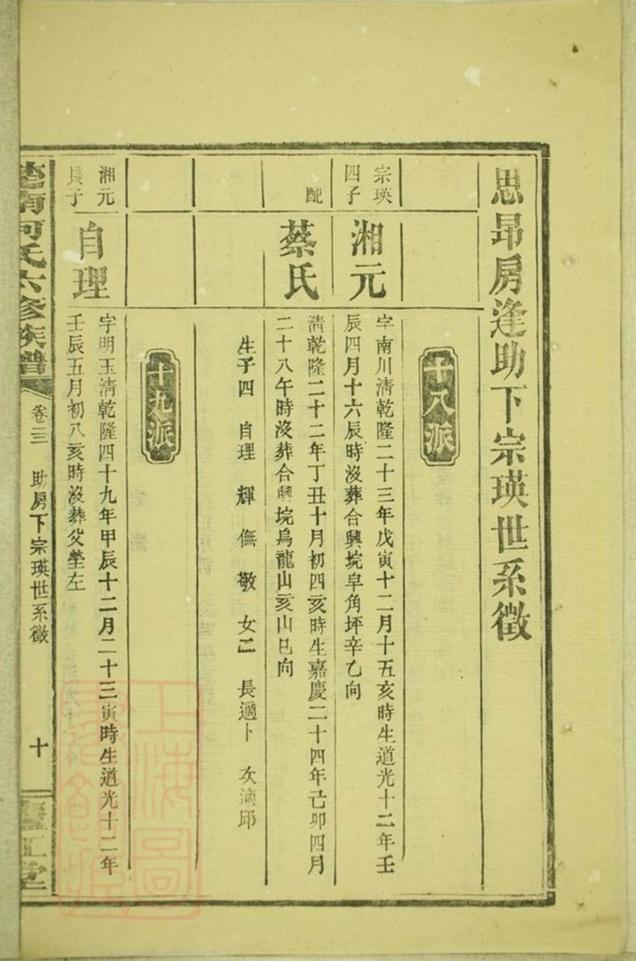 思昂房逢助下宗瑛世系徵
十八派
宗瑛
四子
湘元
字南川清乾隆二十三年戊寅十二月十五亥時生道光十二年壬
辰四月十六辰時沒葬合興垸皁角坪辛乙向
配
蔡氏
清乾隆二十二年丁丑十月初四亥時生嘉慶二十四年己卯四月
二十八午時沒葬合興垸烏龍山亥山巳向
生子四 自理 輝 僃 敬 女二 長適卜 次適邱
十九派
湘元
長子
自理
字明玉清乾隆四十九年甲辰十二月二十三寅時生道光十二年
壬辰五月初八亥時沒葬父塋左
南何氏六修族譜
卷三 助房下宗瑛世系徵
十
堂